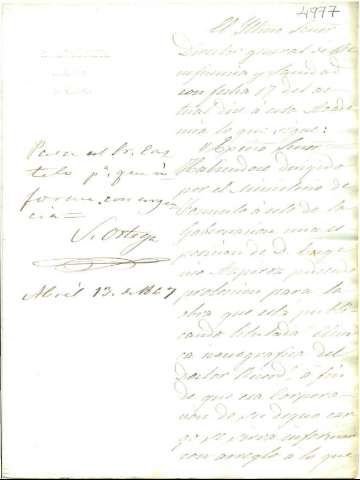 4977
El Ilmo Señor
Director general de Be
neficencia y Sanidad
con fecha 17 del ac
tual dice á esta Acade
mia lo que sigue:
Excmo Señor
Habiendose dirigido
por el Ministerio de
Fomento á este de la
Gobernacion una es
posicion de D.
pidiendo
proteccion para la
obra que está publi
cando titulada Clini
ca iconografica del
Doctor Ricord á fin
de que esa Corpora
cion de su digno car
go se sirva informar
con arreglo á lo que
Pase al Sr. Cas
telo pª que in
forme con urgen
cia=
S. Ortega
Abril 13. de 1867